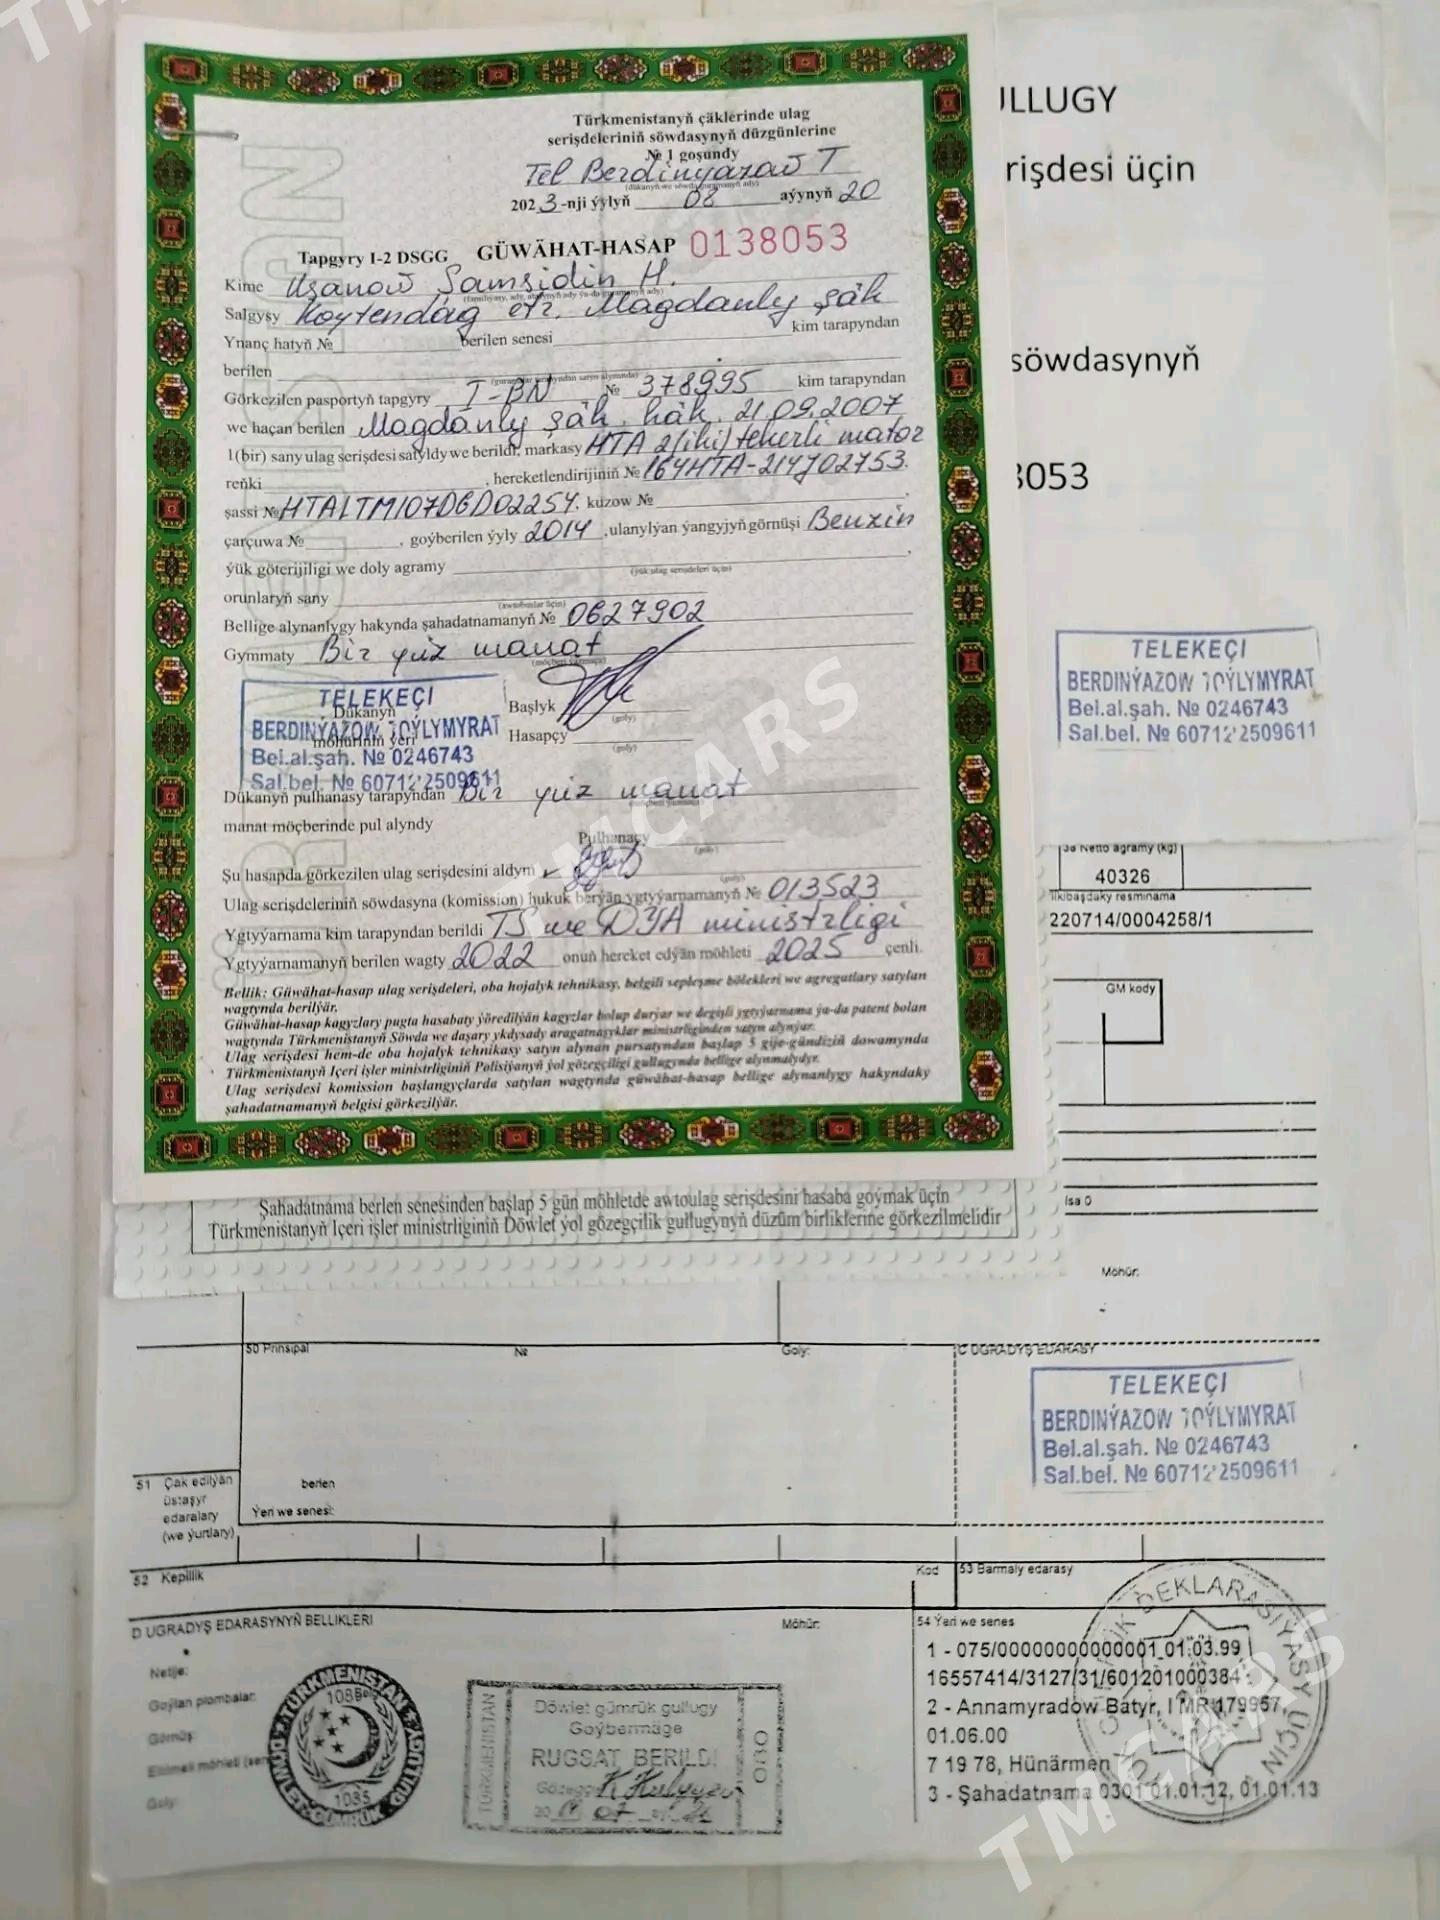 Türkmenistanyň çäklerinde ulag
serişdeleriniň söwdasynyň düzgünlerine
№ 1 goşundy
Tel Berdinyazow T
(dükanyň we söwda guramanyň ady)
2023-nji ýylyň 08 aýynyň 20
Tapgyry I-2 DSGG GÜWÄHAT-HASAP 0138053
Kime Uşanow Şamsidin H.
Salgysy Koytendag etr. Magdanly şäh
Ynanç hatyň № berilen senesi kim tarapyndan
berilen
Görkezilen pasportyň tapgyry I-BN № 378995 kim tarapyndan
we haçan berilen Magdanly şäh. häk. 21.09.2007
1(bir) sany ulag serişdesi satyldy we berildi, markasy HTA 2(iki) tekerli mator
reňki , hereketlendirijiniň № 164HTA-214J02753.
şassi № HTALTM107D6D02254, kuzow №
çarçuwa № , goýberilen ýyly 2014 ,ulanylýan ýangyjyň görnüşi Benzin
ýük göterijiligi we doly agramy
(ýük ulag serişdeleri üçin)
orunlaryň sany
(awtobuslar üçin)
Bellige alynanlygy hakynda şahadatnamanyň № 0627902
Gymmaty Bir yüz manat
TELEKEÇI
Dükanyň
BERDINÝAZOW TOÝLYMYRAT
möhüriniň ýeri
Bel.al.şah. № 0246743
Sal.bel. № 607122509611
Başlyk
(goly)
Hasapçy
(goly)
Dükanyň pulhanasy tarapyndan Bir yüz manat
manat möçberinde pul alyndy
Pulhanaçy
(goly)
Şu hasapda görkezilen ulag serişdesini aldym
(goly)
Ulag serişdeleriniň söwdasyna (komission) hukuk berýän ygtyýarnamanyň № 013523
Ygtyýarnama kim tarapyndan berildi TS we DYA ministrligi
Ygtyýarnamanyň berilen wagty 2022 onuň hereket edýän möhleti 2025 çenli.
Bellik: Güwähat-hasap ulag serişdeleri, oba hojalyk tehnikasy, belgili sepleşme bölekleri we agregatlary satylan
wagtynda berilýär.
Güwähat-hasap kagyzlary pugta hasabaty ýöredilýän kagyzlar bolup durýar we degişli ygtyýarnama ýa-da patent bolan
wagtynda Türkmenistanyň Söwda we daşary ykdysady aragatnaşyklar ministrliginden satyn alynýar.
Ulag serişdesi hem-de oba hojalyk tehnikasy satyn alynan pursatyndan başlap 5 gije-gündiziň dowamynda
Türkmenistanyň Içeri işler ministrliginiň Polisiýanyň ýol gözegçiligi gullugynda bellige alynmalydyr.
Ulag serişdesi komission başlangyçlarda satylan wagtynda güwähat-hasap bellige alynanlygy hakyndaky
şahadatnamanyň belgisi görkezilýär.
Şahadatnama berlen senesinden başlap 5 gün möhletde awtoulag serişdesini hasaba goýmak üçin
Türkmenistanyň Içeri işler ministrliginiň Döwlet ýol gözegçilik gullugynyň düzüm birliklerine görkezilmelidir
ULLUGY
rişdesi üçin
söwdasynyň
3053
TELEKEÇI
BERDINÝAZOW TOÝLYMYRAT
Bel.al.şah. № 0246743
Sal.bel. № 607122509611
38 Netto agramy (kg)
40326
ilkibaşdaky resminama
220714/0004258/1
GM kody
Isa 0
Möhür:
50 Prinsipal № Goly: C UGRADYŞ EDARASY
TELEKEÇI
BERDINÝAZOW TOÝLYMYRAT
Bel.al.şah. № 0246743
Sal.bel. № 607122509611
51 Çak edilýän
üstaşyr
edaralary
(we ýurtlary)
berlen
Ýeri we senesi:
52 Kepillik Kod 53 Barmaly edarasy
D UGRADYŞ EDARASYNYŇ BELLIKLERI Möhür:
Netije:
Goýlan plombalar:
Görnüş:
Goly:
TÜRKMENISTAN
DÖWLET GÜMRÜK GULLUGY
TÜRKMENISTAN
Döwlet gümrük gullugy
Goýbermäge
RUGSAT BERILDI
080
54 Ýeri we senes
1 - 075/00000000000001 01.03.99
16557414/3127/31/601201000384
2 - Annamyradow Batyr, I MR 179957,
01.06.00
7 19 78, Hünärmen
3 - Şahadatnama 0301 01.01.12, 01.01.13
GÜMRÜK DEKLARASIÝASY ÜÇIN
TMCARS
TMCARS